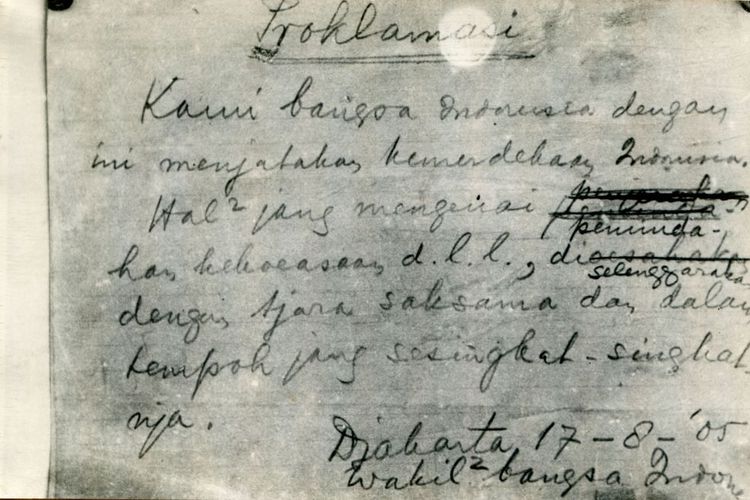 Proklamasi
Kami bangsa Indonesia dengan
ini menjatakan kemerdekaan Indonesia.
Hal² jang mengenai
peminda-
han kekoeasaan d.l.l., dioesahakan
selenggaraka
dengan tjara saksama dan dalam
tempoh jang sesingkat-singkat
nja.
Djakarta, 17 - 8 - '05
Wakil² bangsa Indon